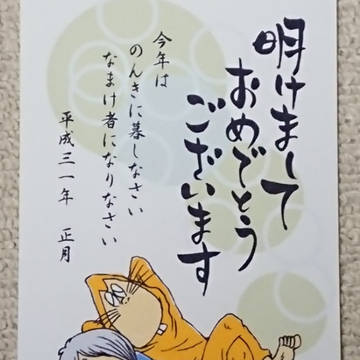 明けまして
おめでとう
ございます
今年は
のんきに暮しなさい
なまけ者になりなさい
平成三一年 正月